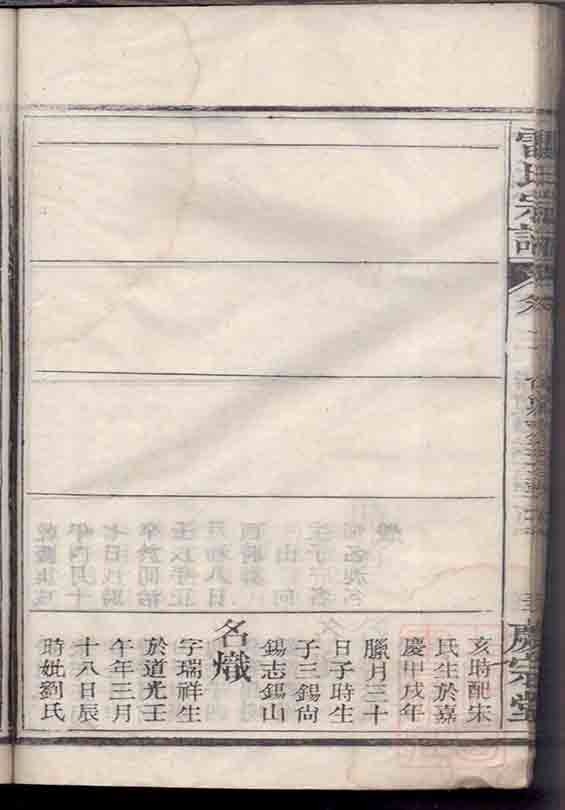 雷氏宗譜
卷二
慶宗堂
亥時配宋
氏生於嘉
慶甲戌年
臘月三十
日子時生
子三錫尙
錫志錫山
名熾
字瑞祥生
於道光壬
午年三月
十八日辰
時妣劉氏